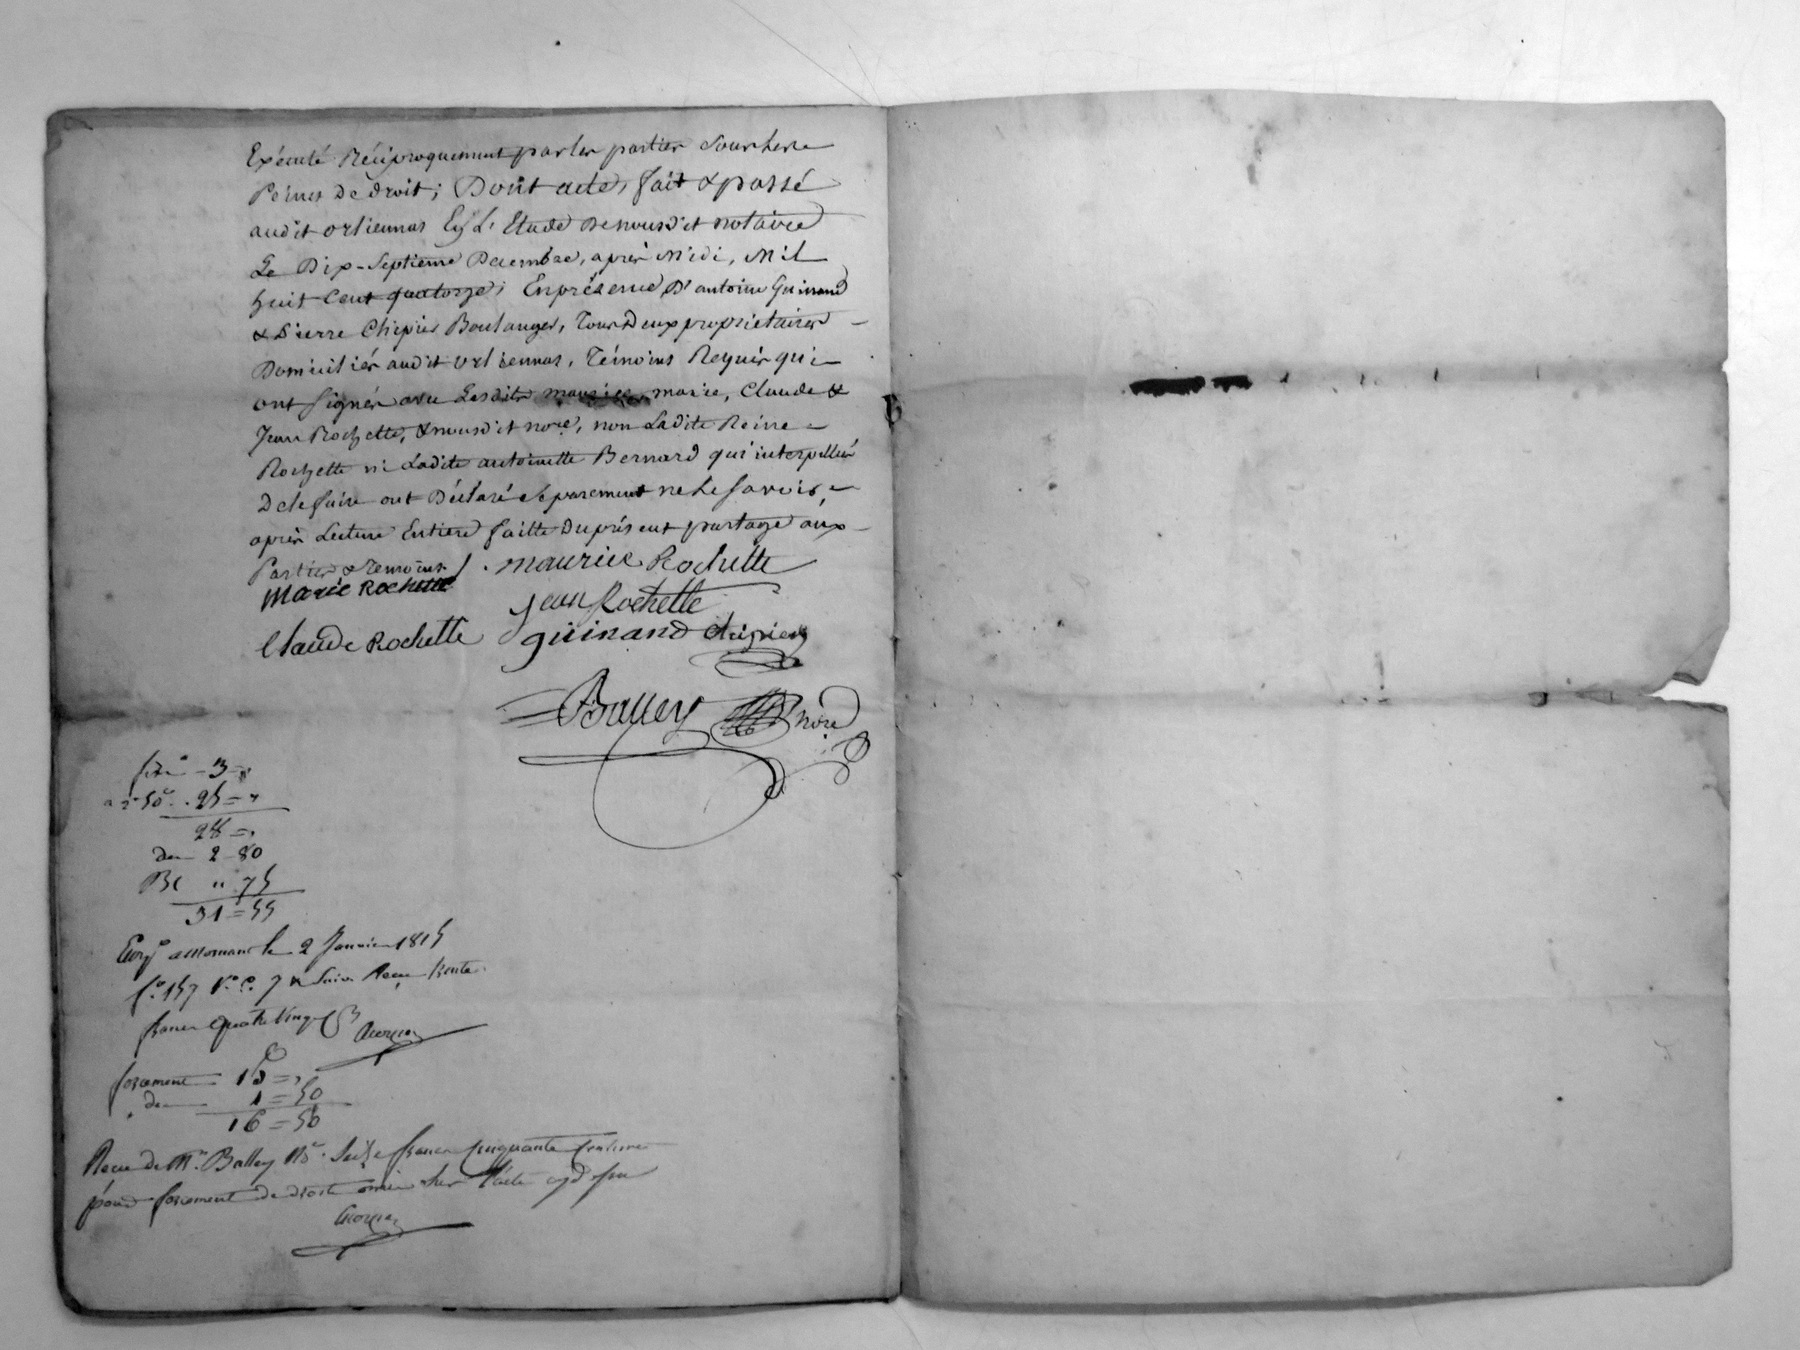 Exécuté Réciproquement par les parties sous les
Peines de droit; Dont acte, fait & passé
audit orliennas En L'Etude de nousdit notaire
Le Dix-Septieme Decembre, après Midi, Mil
huit Cent quatorze; En présence D'antoine Guinand
& Pierre Chipier Boulanger, Tous Deux propriétaires
Domiciliés audit orliennas, Témoins Requis qui
ont signés avec Lesdits maurice, marie, Claude &
Jean Rochette, & nousdit nore, non Ladite Reine
Rochette ni Ladite antoinette Bernard qui interpellées
de le faire ont Déclaré Séparement ne Le savoir,
après Lecture Entiere faitte du présent partage aux
Parties & temoins /. maurice Rochette
Marie Rochette
jean Rochette
Claude Rochette
guinand chipier
Balley nore
3 =
25 =
28 =
2 80
" 75
31 = 55
Enrg a Mornant le 2 Janvier 1815
fo. 157 Vo. C. 7 & Suiv Reçu trente
francs quatre Vingt
forcement 15 =
1 = 50
16 = 50
Reçu de Mr. Balley No. Seize francs Cinquante Centimes
pour forcement de droit omis Sur l'acte